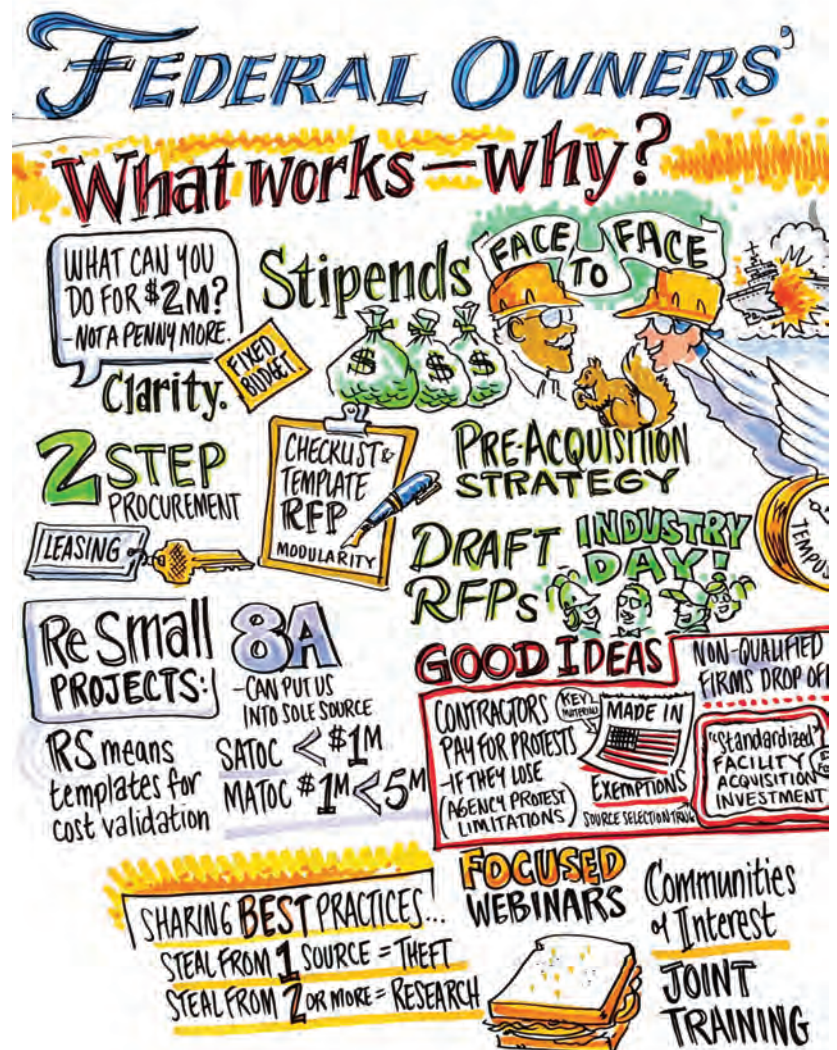 FEDERAL OWNERS'
What works – why?
WHAT CAN YOU
DO FOR $2M?
– NOT A PENNY MORE.
Clarity.
FIXED
BUDGET
Stipends
$
$
$
FACE TO FACE
2 STEP
PROCUREMENT
LEASING
CHECKLIST &
TEMPLATE
RFP
MODULARITY
PRE-ACQUISITION
STRATEGY
DRAFT
RFPs
INDUSTRY
DAY!
TEMPUS
Re Small
PROJECTS:
RS means
templates for
cost validation
8A
– CAN PUT US
INTO SOLE SOURCE
SATOC < $1M
MATOC $1M < 5M
GOOD IDEAS
CONTRACTORS
PAY FOR PROTESTS
– IF THEY LOSE
(AGENCY PROTEST
LIMITATIONS)
KEY
MADE IN
EXEMPTIONS
SOURCE SELECTION
NON-QUALIFIED
FIRMS DROP OF
"Standardized"
FACILITY
ACQUISITION
INVESTMENT
SHARING BEST PRACTICES...
STEAL FROM 1 SOURCE = THEFT
STEAL FROM 2 OR MORE = RESEARCH
FOCUSED
WEBINARS
Communities
of Interest
JOINT
TRAINING